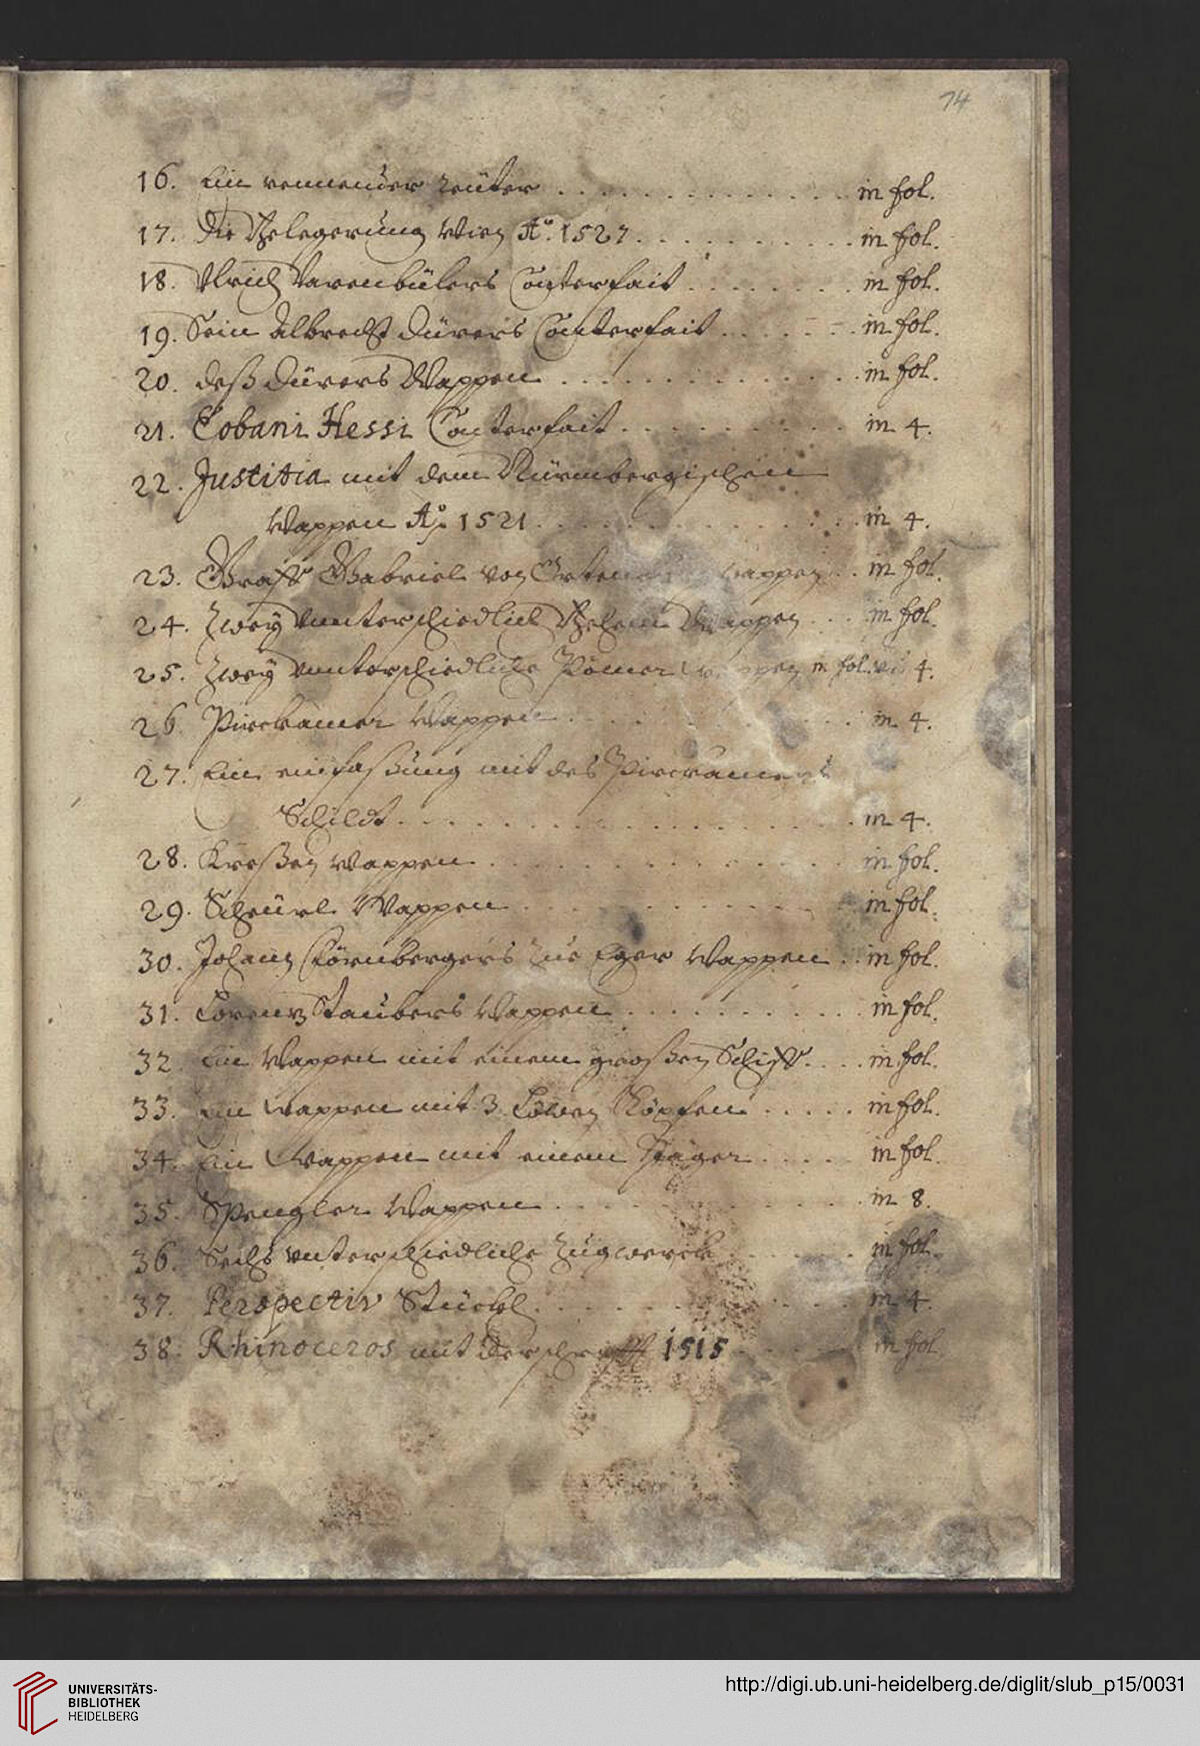 74
16. Ein rennender Reüter . . . . . . . . . . . . . in fol.
17. Die Belegerung Wien Aº. 1527. . . . . . . . . . in fol.
18. Ulrich Varenbülers Conterfait . . . . . . . in fol.
19. Sein Albrecht Dürers Conterfait . . . . . . in fol.
20. deß Dürers Wappen . . . . . . . . . . . . . in fol.
21. Eobani Hessi Conterfait . . . . . . . . . . in 4.
22. Justitia mit dem Nürmbergischen
Wappen Aº. 1521 . . . . . . . . . . . . . in 4.
23. Graff Gabriel von wappen . . in fol.
24. Zwey vnnterschiedlich Behem Wappen . . . in fol.
25. Zwey vnnterschiedliche Pömer in fol. 4.
26 Pirckamer Wappen . . . . . . . . . . . in 4.
27. Ein einfaßung mit des Pirckamers
Schildt . . . . . . . . . . . . . . . . . in 4.
28. Kreßen Wappen . . . . . . . . . . . . . in fol.
29. Scheürl Wappen . . . . . . . . . . . . in fol.
30. Johann Zue Eger Wappen . . in fol.
31. Lorenz Staubers Wappen . . . . . . . . . . in fol.
32. Ein Wappen mit einem großen Schiff . . . . in fol.
33. Ein Wappen mit 3 Löwen Köpfen . . . . . in fol.
34. Ein Wappen mit einem . . . . in fol.
35. Spengler Wappen . . . . . . . . . . . in 8.
36. Sechs vnterschiedliche Zugwerck . . . . . . in fol.
37. Perspectiv Stückl . . . . . . . . . . . in 4.
38. Rhinoceros mit der schrifft 1515 . . . . . in fol.
UNIVERSITÄTS-
BIBLIOTHEK
HEIDELBERG
http://digi.ub.uni-heidelberg.de/diglit/slub_p15/0031